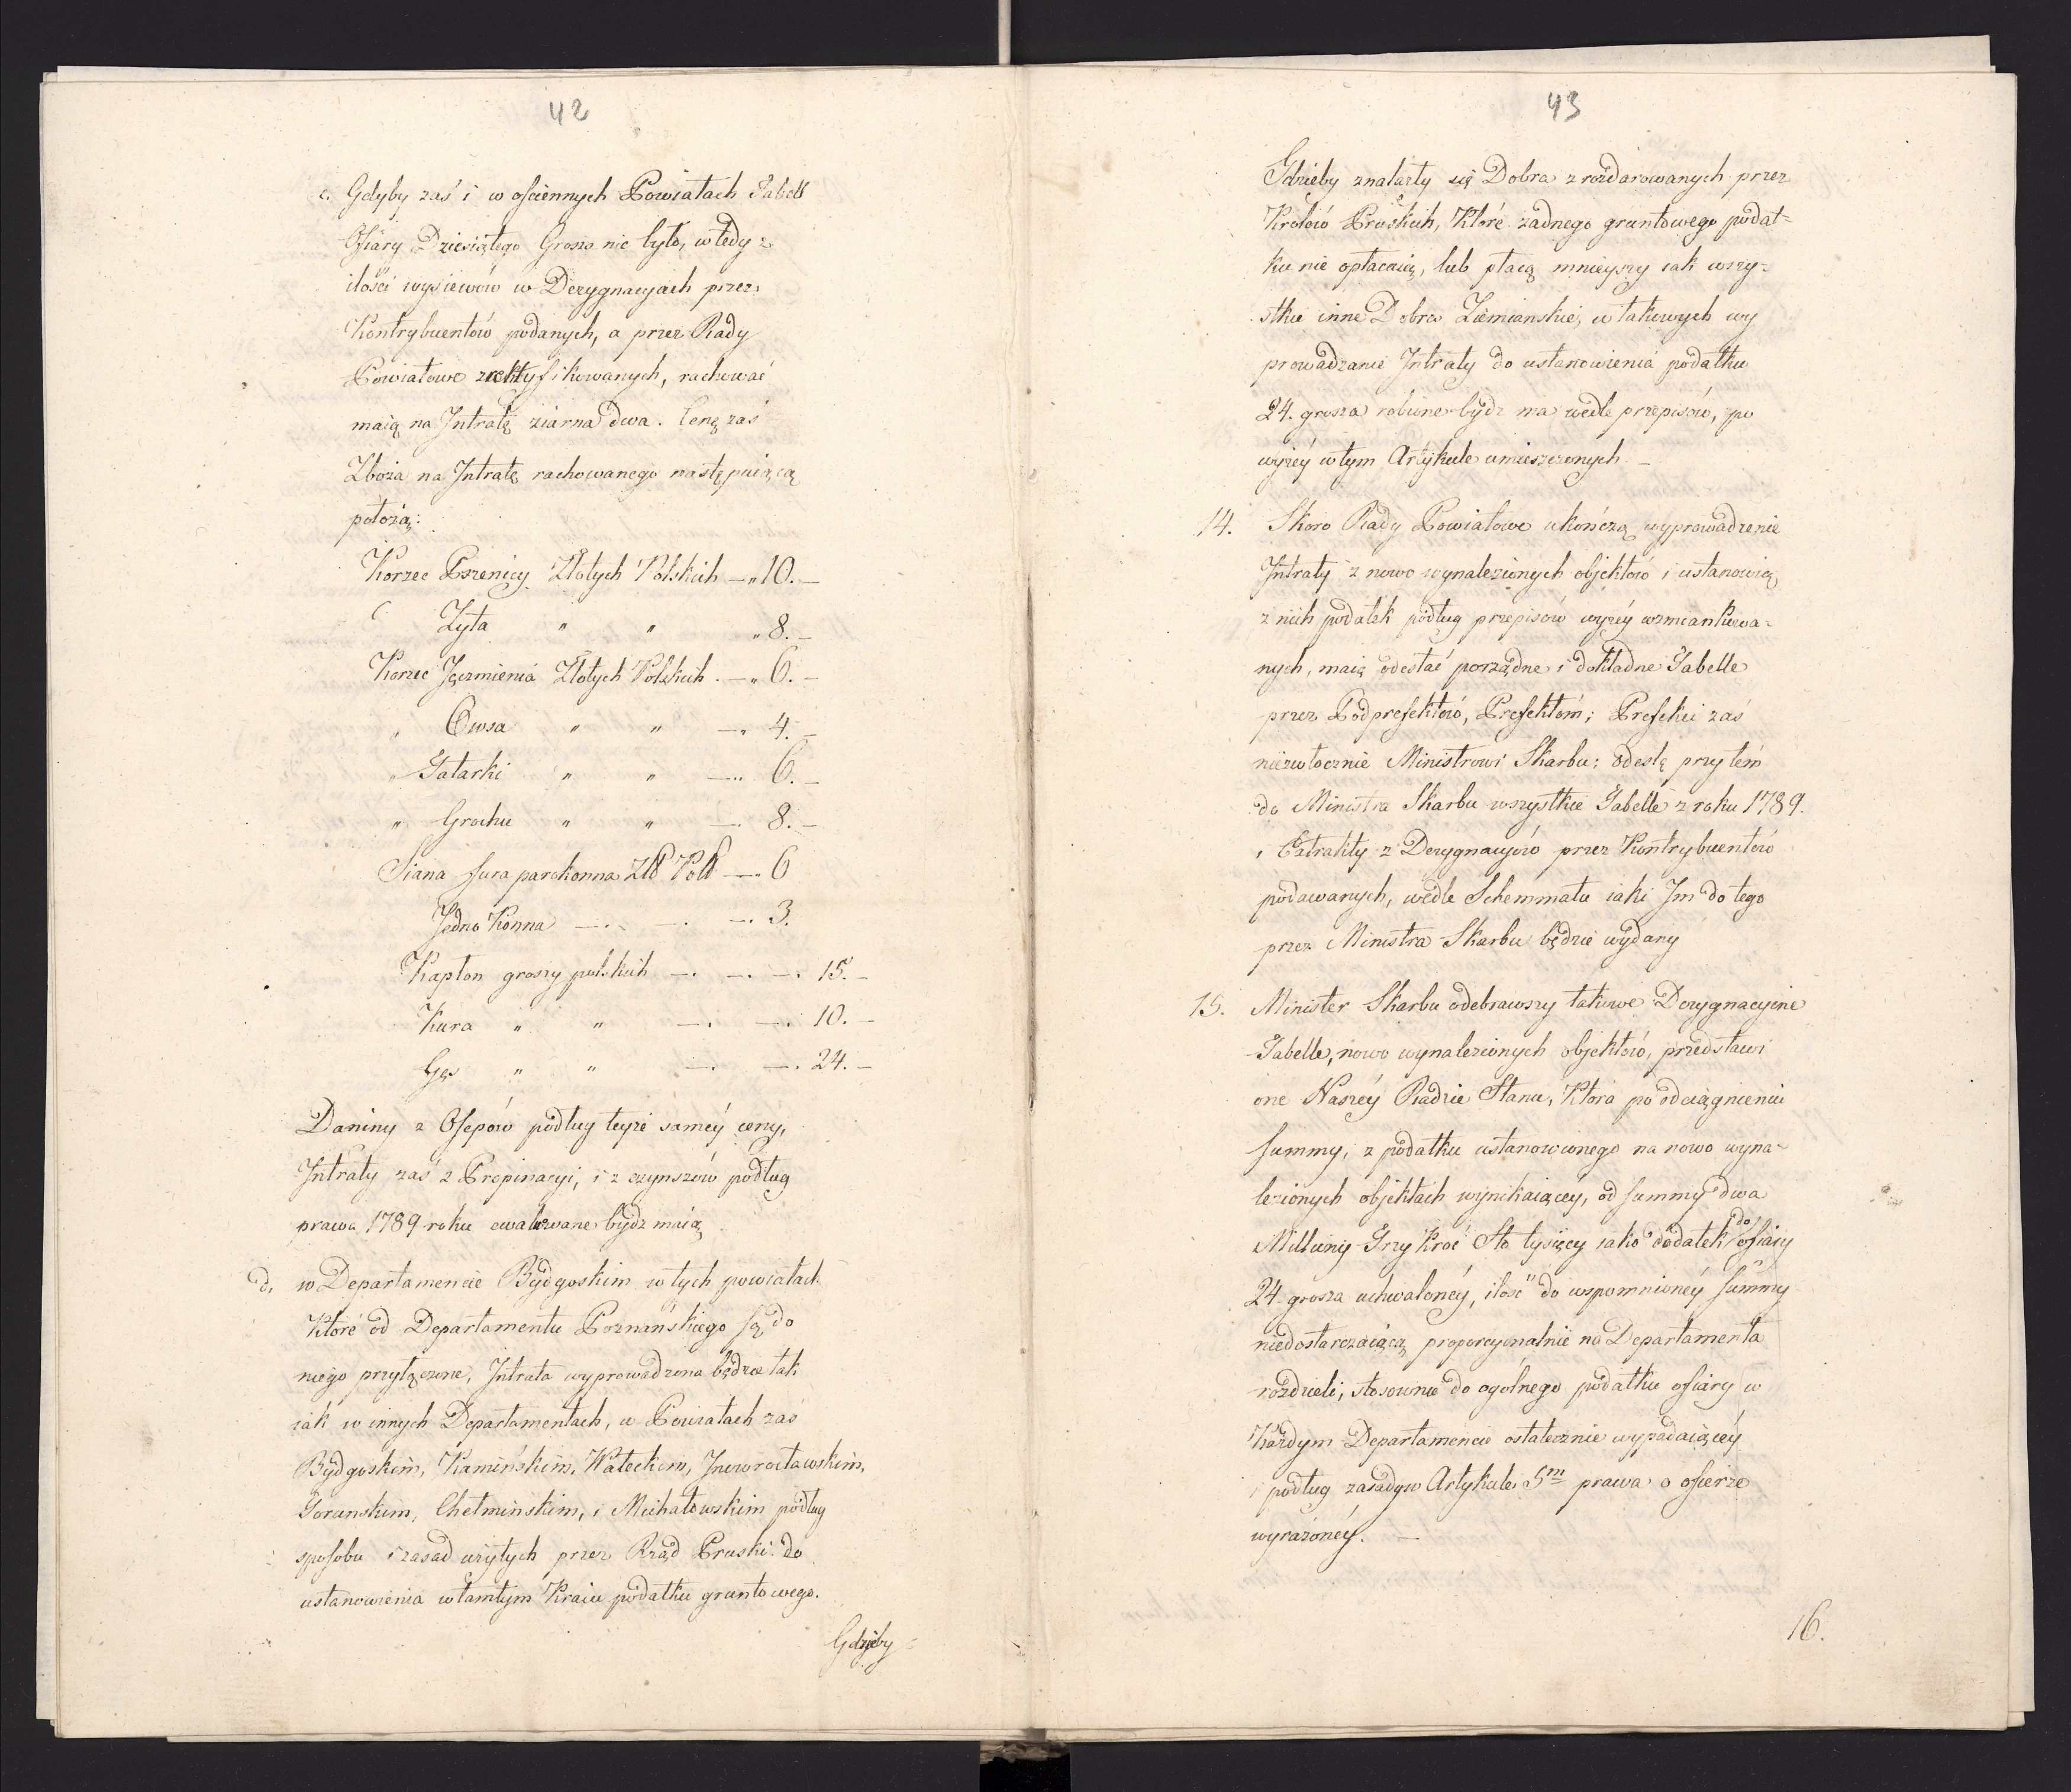 42
c. Gdyby zaś i w ościennych Powiatach Tabell
Ofiary Dziesiątego Grosza nie było, wtedy z
ilości wysiewów w Dezygnacyiach przez
Kontrybuentów podanych, a przez Rady
Powiatowe zrektyfikowanych, rachować
maią na Intratę ziarna dwa. Cenę zaś
Zboża na Intratę rachowanego następuiącą
położą:
Korzec Pszenicy Złotych Polskich —„ 10. —
Żyta „ „ „ 8. —
Korzec Jęczmienia Złotych Polskich. —„ 6. —
„ Owsa „ „ —„ 4. —
„ Tatarki „ „ —„ 6. —
„ Grochu „ „ —. 8. —
Siana fura parokonna Zł Pol —„ 6
Jedno Konna —. —. —. 3.
Kapłon groszy polskich —. —. —. 15. —
Kura „ „ —. —. 10. —
Gęś „ „ —. —. 24. —
Daniny z Osepów podług teyże saméy ceny,
Intraty zaś z Propinacyi, i z czynszów podług
prawa 1789 roku ewaluowane bydź maią
d, w Departamencie Bydgoskim w tych powiatach
Które od Departamentu Poznańskiego są do
niego przyłączone, Intrata wyprowadzona będzie tak
iak w innych Departamentach, w Powiatach zaś
Bydgoskim, Kamińskim, Wałeckim, Inowrocławskim,
Toruńskim, Chełmińskim, i Michałowskim podług
sposobu i zasad użytych przez Rząd Pruski do
ustanowienia w tamtym Kraiu podatku gruntowego.
Gdzieby
43
Gdzieby znalazły się Dobra z rozdarowanych przez
Królów Pruskich, Które żadnego gruntowego podat=
ku nie opłacaią, lub płacą mnieyszy iak wszy=
stkie inne Dobra Ziemianskie, w takowych wy
prowadzanie Intraty do ustanowienia podatku
24. grosza robione bydź ma wedle przepisów, po
wyżéy w tym Artykule umieszczonych. —
14. Skoro Rady Powiatowe ukończą wyprowadzenie
Intraty z nowo wynalezionych objektów i ustanowią
z nich podatek podług przepisów wyżéy wzmiankowa=
nych, maią odesłać porządne i dokładne Tabelle
przez Podprefektów, Prefektom; Prefekci zaś
niezwłocznie Ministrowi Skarbu; odeslą przytém
do Ministra Skarbu wszystkie Tabelle z roku 1789.
i Extrakty z Dezygnacyów przez Kontrybuentów
podawanych, wedle Schemmatu iaki Im do tego
przez Ministra Skarbu będzie wydany
15. Minister Skarbu odebrawszy takowe Dezygnacyine
Tabelle, nowo wynalezionych objektów, przedstawi
one Naszéy Radzie Stanu, Która po odciągnieniu
summy, z podatku ustanowionego na nowo wyna=
lezionych objektach wynikaiącéy, od summy dwa
Milliony Trzy Kroć Sto tysięcy iako dodatek do ofiary
24. grosza uchwalonéy, ilość do wspomnionéy summy
niedostarczaiącą, proporcyonalnie na Departamenta
rozdzieli; stosownie do ogólnego podatku ofiary w
Każdym Departamencie ostatecznie wypadaiącéy
i podług zasad w Artykule 5m prawa o ofierze
wyrażonéy. —
16.